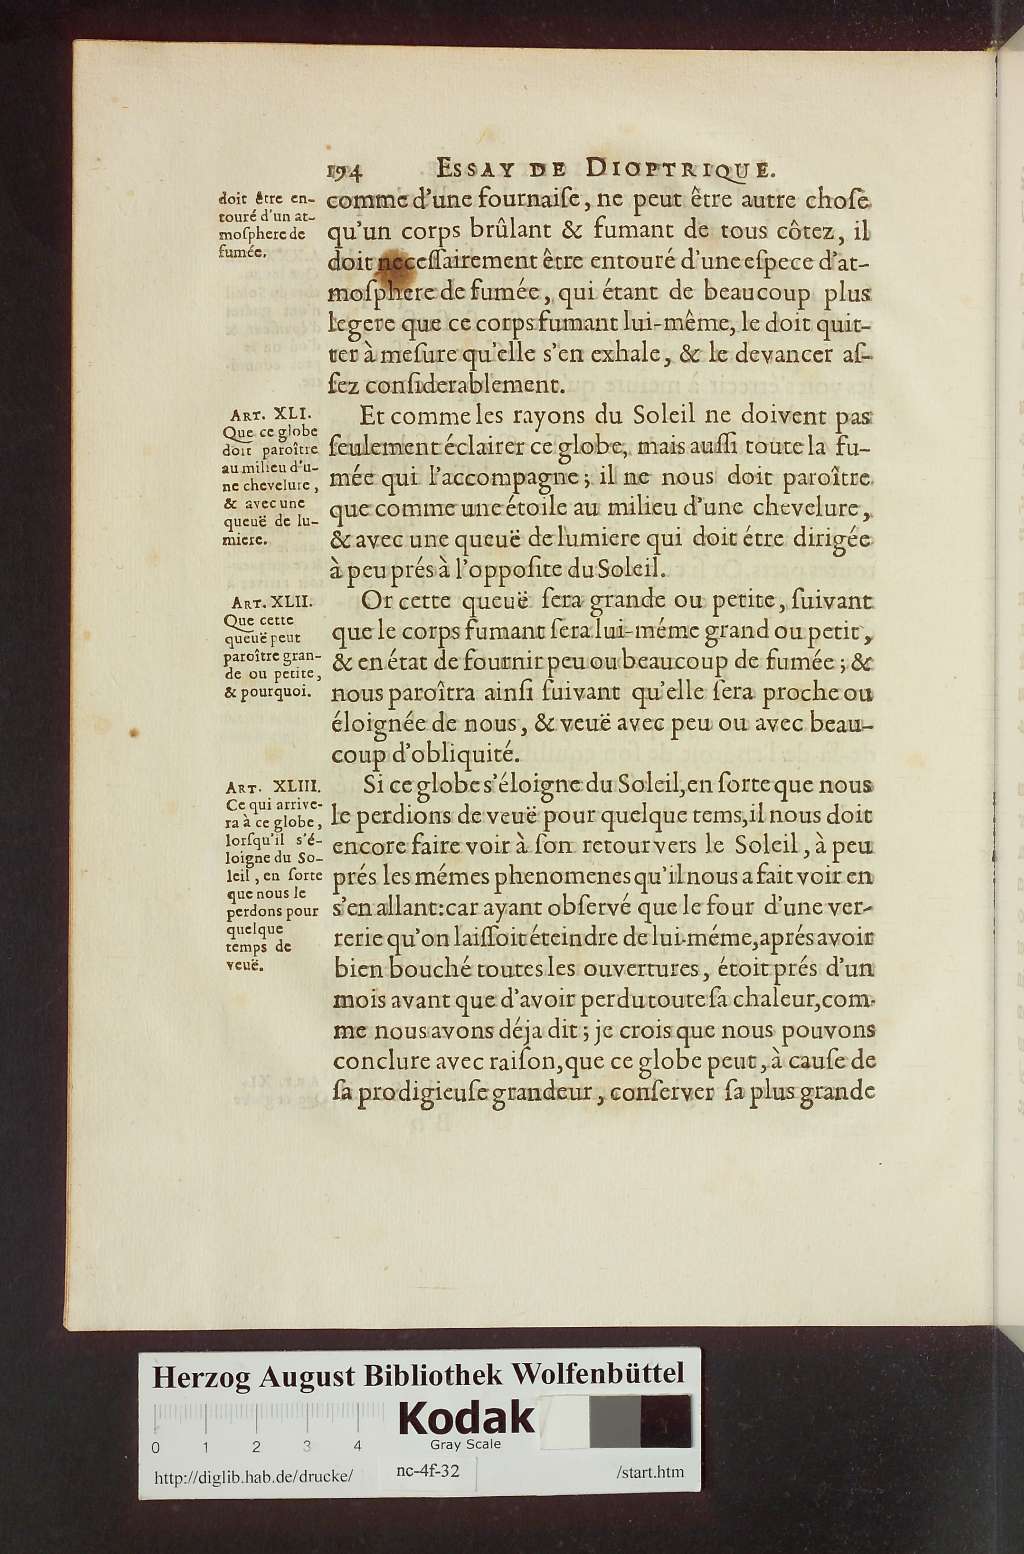 194 ESSAY DE DIOPTRIQUE.
doit être en-
touré d'un at-
moſphere de
fumée.
comme d'une fournaiſe, ne peut être autre choſe
qu'un corps brûlant & fumant de tous côtez, il
doit neceſſairement être entouré d'une eſpece d'at-
moſphere de fumée, qui étant de beaucoup plus
legere que ce corps fumant lui-même, le doit quit-
ter à meſure qu'elle s'en exhale, & le devancer aſ-
ſez conſiderablement.
ART. XLI.
Que ce globe
doit paroître
au milieu d'u-
ne chevelure,
& avec une
queuë de lu-
miere.
Et comme les rayons du Soleil ne doivent pas
ſeulement éclairer ce globe, mais auſſi toute la fu-
mée qui l'accompagne; il ne nous doit paroître
que comme une étoile au milieu d'une chevelure,
& avec une queuë de lumiere qui doit étre dirigée
à peu prés à l'oppoſite du Soleil.
ART. XLII.
Que cette
queuë peut
paroître gran-
de ou petite,
& pourquoi.
Or cette queuë ſera grande ou petite, ſuivant
que le corps fumant ſera lui-méme grand ou petit,
& en état de fournir peu ou beaucoup de fumée; &
nous paroîtra ainſi ſuivant qu'elle ſera proche ou
éloignée de nous, & veuë avec peu ou avec beau-
coup d'obliquité.
ART. XLIII.
Ce qui arrive-
ra à ce globe,
lorſqu'il s'é-
loigne du So-
leil, en ſorte
que nous le
perdons pour
quelque
temps de
veuë.
Si ce globe s'éloigne du Soleil, en ſorte que nous
le perdions de veuë pour quelque tems, il nous doit
encore faire voir à ſon retour vers le Soleil, à peu
prés les mémes phenomenes qu'il nous a fait voir en
s'en allant: car ayant obſervé que le four d'une ver-
rerie qu'on laiſſoit éteindre de lui-méme, aprés avoir
bien bouché toutes les ouvertures, étoit prés d'un
mois avant que d'avoir perdu toute ſa chaleur, com-
me nous avons déja dit; je crois que nous pouvons
conclure avec raiſon, que ce globe peut, à cauſe de
ſa prodigieuſe grandeur, conſerver ſa plus grande
Herzog August Bibliothek Wolfenbüttel
Kodak
Gray Scale
0 1 2 3 4
http://diglib.hab.de/drucke/ nc-4f-32 /start.htm